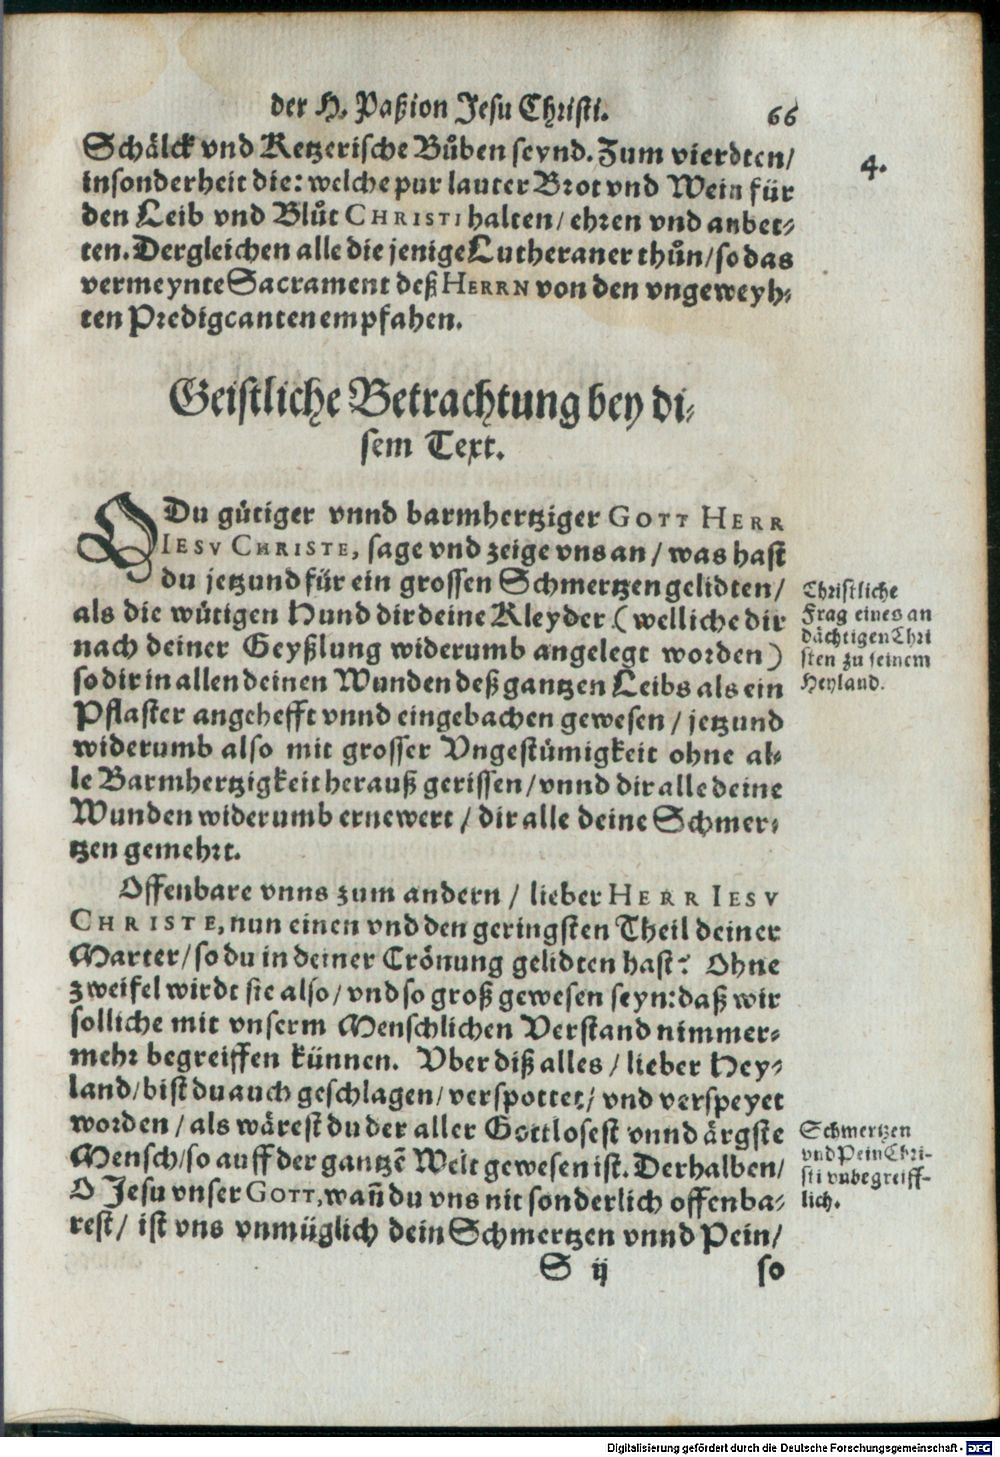 der H. Paßion Jesu Christi. 66
Schälck vnd Ketzerische Bůben seynd. Zum vierdten/
4.
insonderheit die: welche pur lauter Brot vnd Wein für
den Leib vnd Blůt CHRISTI halten/ ehren vnd anbet-
ten. Dergleichen alle die jenige Lutheraner thůn/ so das
vermeynte Sacrament deß HERRN von den vngeweyh-
ten Predigcanten empfahen.
Geistliche Betrachtung bey di-
sem Text.
O Du gůtiger vnnd barmhertziger GOTT HERR
IESV CHRISTE, sage vnd zeige vns an / was hast
du jetzund für ein grossen Schmertzen gelidten/
als die wůtigen Hund dir deine Kleyder (welliche dir
nach deiner Geyßlung widerumb angelegt worden)
so dir in allen deinen Wunden deß gantzen Leibs als ein
Pflaster angehefft vnnd eingebachen gewesen / jetzund
widerumb also mit grosser Vngestůmigkeit ohne al-
le Barmhertzigkeit herauß gerissen/ vnnd dir alle deine
Wunden widerumb ernewert / dir alle deine Schmer-
tzen gemehrt.
Christliche
Frag eines an
dächtigen Chri
sten zu seinem
Heyland.
Offenbare vnns zum andern / lieber HERR IESV
CHRISTE, nun einen vnd den geringsten Theil deiner
Marter/ so du in deiner Crönung gelidten hast? Ohne
zweifel wirdt sie also/ vnd so groß gewesen seyn: daß wir
solliche mit vnserm Menschlichen Verstand nimmer-
mehr begreiffen künnen. Vber diß alles / lieber Hey-
land/ bist du auch geschlagen/ verspottet/ vnd verspeyet
worden / als wärest du der aller Gottlosest vnnd ärgste
Mensch/ so auff der gantzē Welt gewesen ist. Derhalben/
O Jesu vnser GOTT, wañ du vns nit sonderlich offenba-
rest/ ist vns vnmüglich dein Schmertzen vnnd Pein/
Schmertzen
vnd Pein Chri-
sti vnbegreiff-
lich.
S ij so
Digitalisierung gefördert durch die Deutsche Forschungsgemeinschaft - DFG